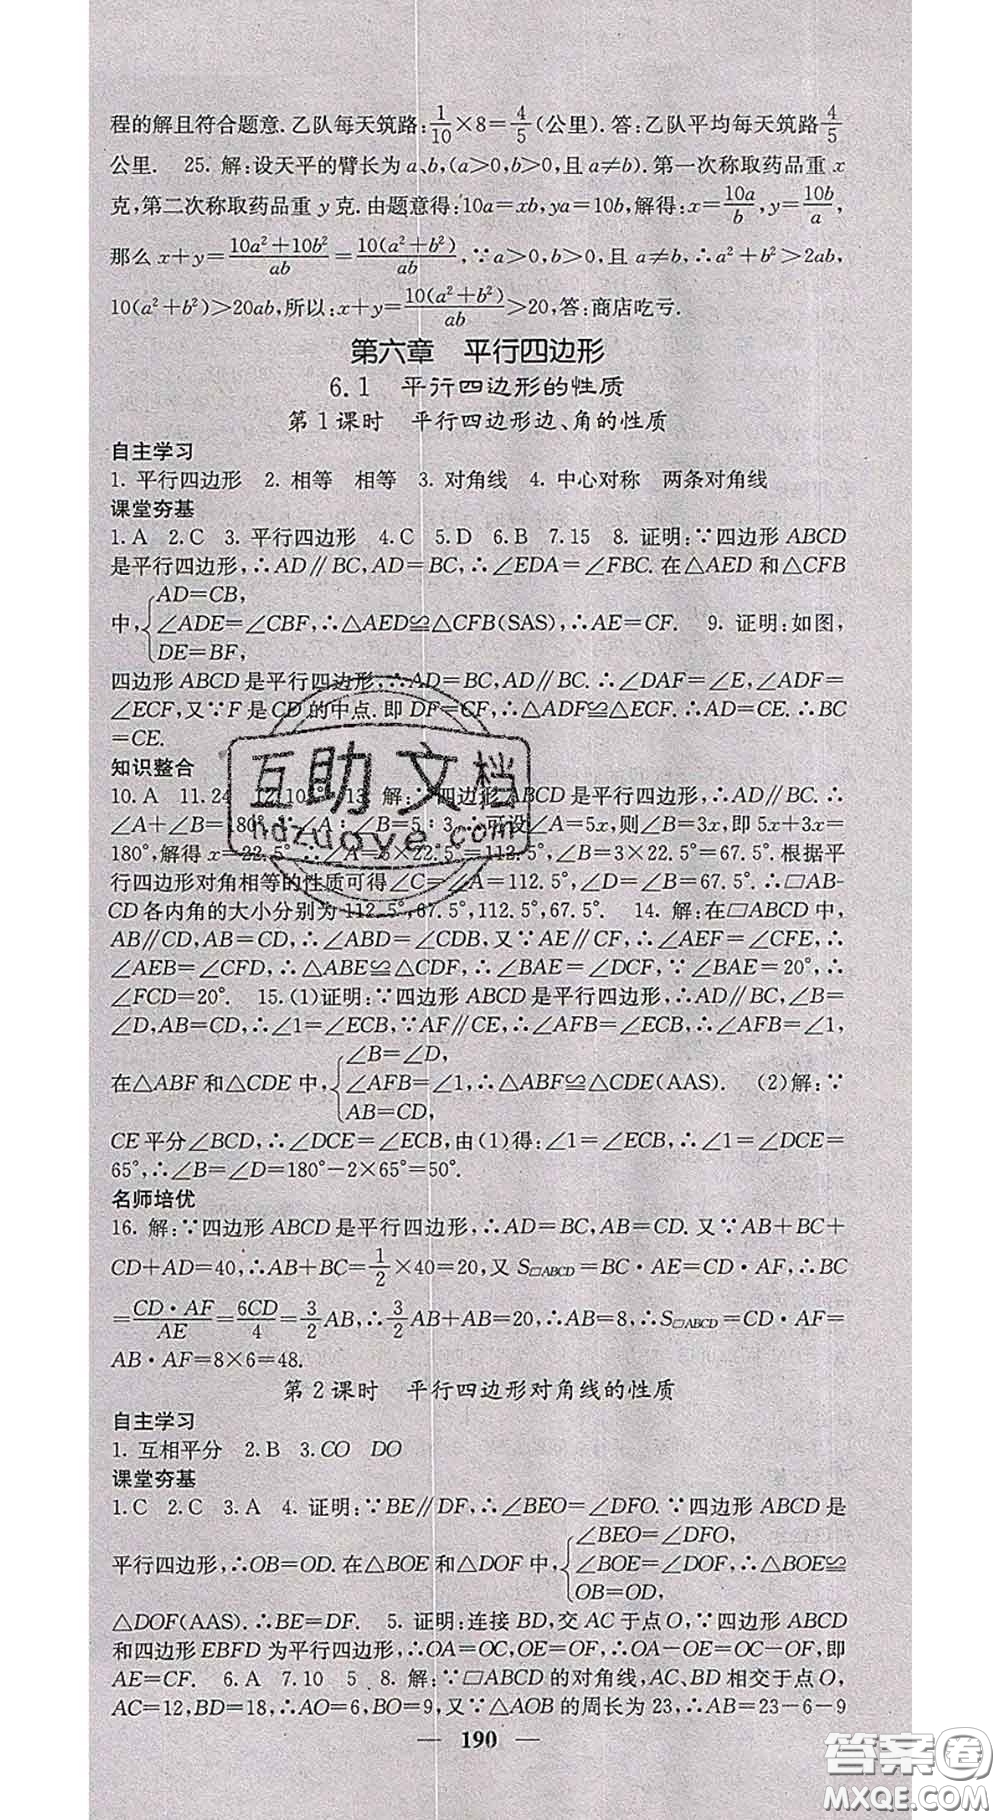 程的解且符合题意.乙队每天筑路:1/10×8=4/5(公里).答:乙队平均每天筑路4/5
公里. 25. 解:设天平的臂长为a、b,(a>0,b>0,且a≠b).第一次称取药品重x
克,第二次称取药品重y克.由题意得:10a=xb,ya=10b,解得:x=10a/b,y=10b/a,
那么x+y=(10a²+10b²)/ab=10(a²+b²)/ab,∵a>0,b>0,且a≠b,∴a²+b²>2ab,
10(a²+b²)>20ab,所以:x+y=10(a²+b²)/ab>20,答:商店吃亏.
第六章 平行四边形
6.1 平行四边形的性质
第1课时 平行四边形边、角的性质
自主学习
1. 平行四边形 2. 相等 相等 3. 对角线 4. 中心对称 两条对角线
课堂夯基
1.A 2.C 3. 平行四边形 4.C 5.D 6.B 7.15 8. 证明:∵四边形ABCD
是平行四边形,∴AD∥BC,AD=BC,∴∠EDA=∠FBC.在△AED和△CFB
中,{AD=CB,
∠ADE=∠CBF,∴△AED≌△CFB(SAS),∴AE=CF. 9. 证明:如图,
DE=BF,
四边形ABCD是平行四边形,∴AD=BC,AD∥BC.∴∠DAF=∠E,∠ADF=
∠ECF,又∵F是CD的中点.即DF=CF,∴△ADF≌△ECF.∴AD=CE.∴BC
=CE.
知识整合
10.A 11.24 12.10 13. 解:∵四边形ABCD是平行四边形,∴AD∥BC.∴
∠A+∠B=180°.∵∠A∶∠B=5∶3,∴可设∠A=5x,则∠B=3x,即5x+3x=
180°,解得x=22.5°.∴∠A=5×22.5°=112.5°,∠B=3×22.5°=67.5°.根据平
行四边形对角相等的性质可得∠C=∠A=112.5°,∠D=∠B=67.5°.∴□AB-
CD各内角的大小分别为112.5°,67.5°,112.5°,67.5°. 14. 解:在□ABCD中,
AB∥CD,AB=CD,∴∠ABD=∠CDB,又∵AE∥CF,∴∠AEF=∠CFE,∴
∠AEB=∠CFD,∴△ABE≌△CDF,∴∠BAE=∠DCF,∵∠BAE=20°,∴
∠FCD=20°. 15.(1)证明:∵四边形ABCD是平行四边形,∴AD∥BC,∠B=
∠D,AB=CD,∴∠1=∠ECB,∵AF∥CE,∴∠AFB=∠ECB,∴∠AFB=∠1,
在△ABF和△CDE中,{∠B=∠D,
∠AFB=∠1,∴△ABF≌△CDE(AAS). (2)解:∵
AB=CD,
CE平分∠BCD,∴∠DCE=∠ECB,由(1)得:∠1=∠ECB,∴∠1=∠DCE=
65°,∴∠B=∠D=180°-2×65°=50°.
名师培优
16. 解:∵四边形ABCD是平行四边形,∴AD=BC,AB=CD.又∵AB+BC+
CD+AD=40,∴AB+BC=1/2×40=20,又S□ABCD=BC·AE=CD·AF,∴BC
=CD·AF/AE=6CD/4=3/2AB,∴3/2AB+AB=20,∴AB=8,∴S□ABCD=CD·AF=
AB·AF=8×6=48.
第2课时 平行四边形对角线的性质
自主学习
1. 互相平分 2.B 3.CO DO
课堂夯基
1.C 2.C 3.A 4. 证明:∵BE∥DF,∴∠BEO=∠DFO.∵四边形ABCD是
平行四边形,∴OB=OD.在△BOE和△DOF中,{∠BEO=∠DFO,
∠BOE=∠DOF,∴△BOE≌
OB=OD,
△DOF(AAS).∴BE=DF. 5. 证明:连接BD,交AC于点O,∵四边形ABCD
和四边形EBFD为平行四边形,∴OA=OC,OE=OF,∴OA-OE=OC-OF,即
AE=CF. 6.A 7.10 5 8. 解:∵□ABCD的对角线,AC、BD相交于点O,
AC=12,BD=18,∴AO=6,BO=9,又∵△AOB的周长为23,∴AB=23-6-9
190
互助文档
hdzuoye.com
答案圈
MXQE.COM